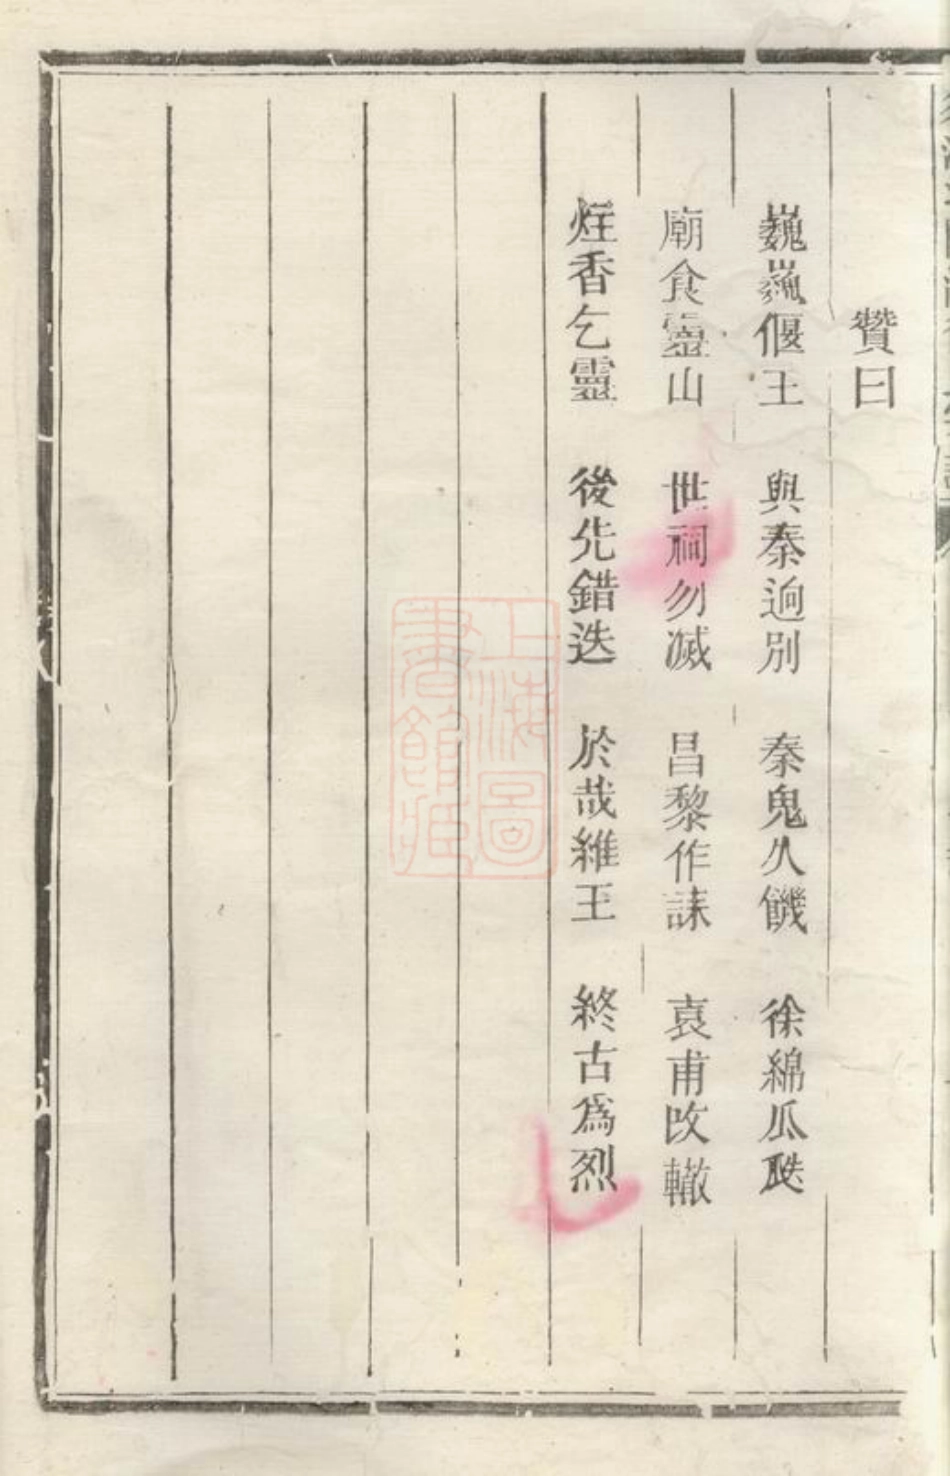 贊曰
巍巍偃王　與秦逈別　秦鬼久饑　徐綿瓜瓞
廟食靈山　世祠勿滅　昌黎作誄　袁甫改轍
炷香乞靈　後先錯迭　於哉維王　終古爲烈
上海圖書館藏